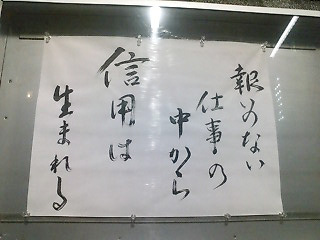 報いのない
仕事の
中から
信用は
生まれる